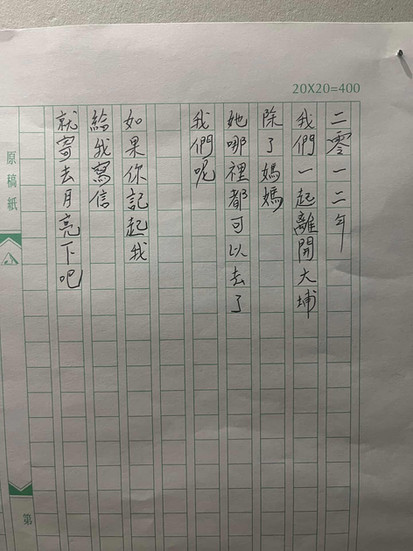 20X20=400
二零一二年
我們一起離開大埔
除了媽媽
她哪裡都可以去了
我們呢
如果你記起我
給我寫信
就寄去月亮下吧
原稿紙
第